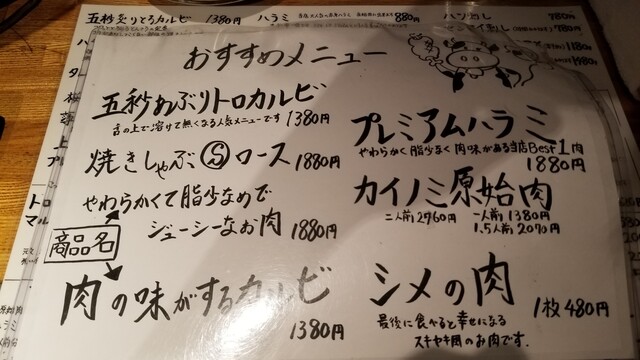 五秒炙りとろカルビ 1380円
ハラミ
880円
780円
おすすめメニュー
五秒あぶりトロカルビ
舌の上で溶けて無くなる人気メニューです 1380円
焼きしゃぶⓈロース 1880円
やわらかくて脂少なめで
ジューシーなお肉 1880円
商品名
肉の味がするカルビ
1380円
プレミアムハラミ
やわらかく脂少なく肉味がある当店Best1肉
1880円
カイノミ原始肉
二人前2760円 一人前1380円
1.5人前2070円
シメの肉
1枚480円
最後に食べると幸せになる
スキヤキ風のお肉です.